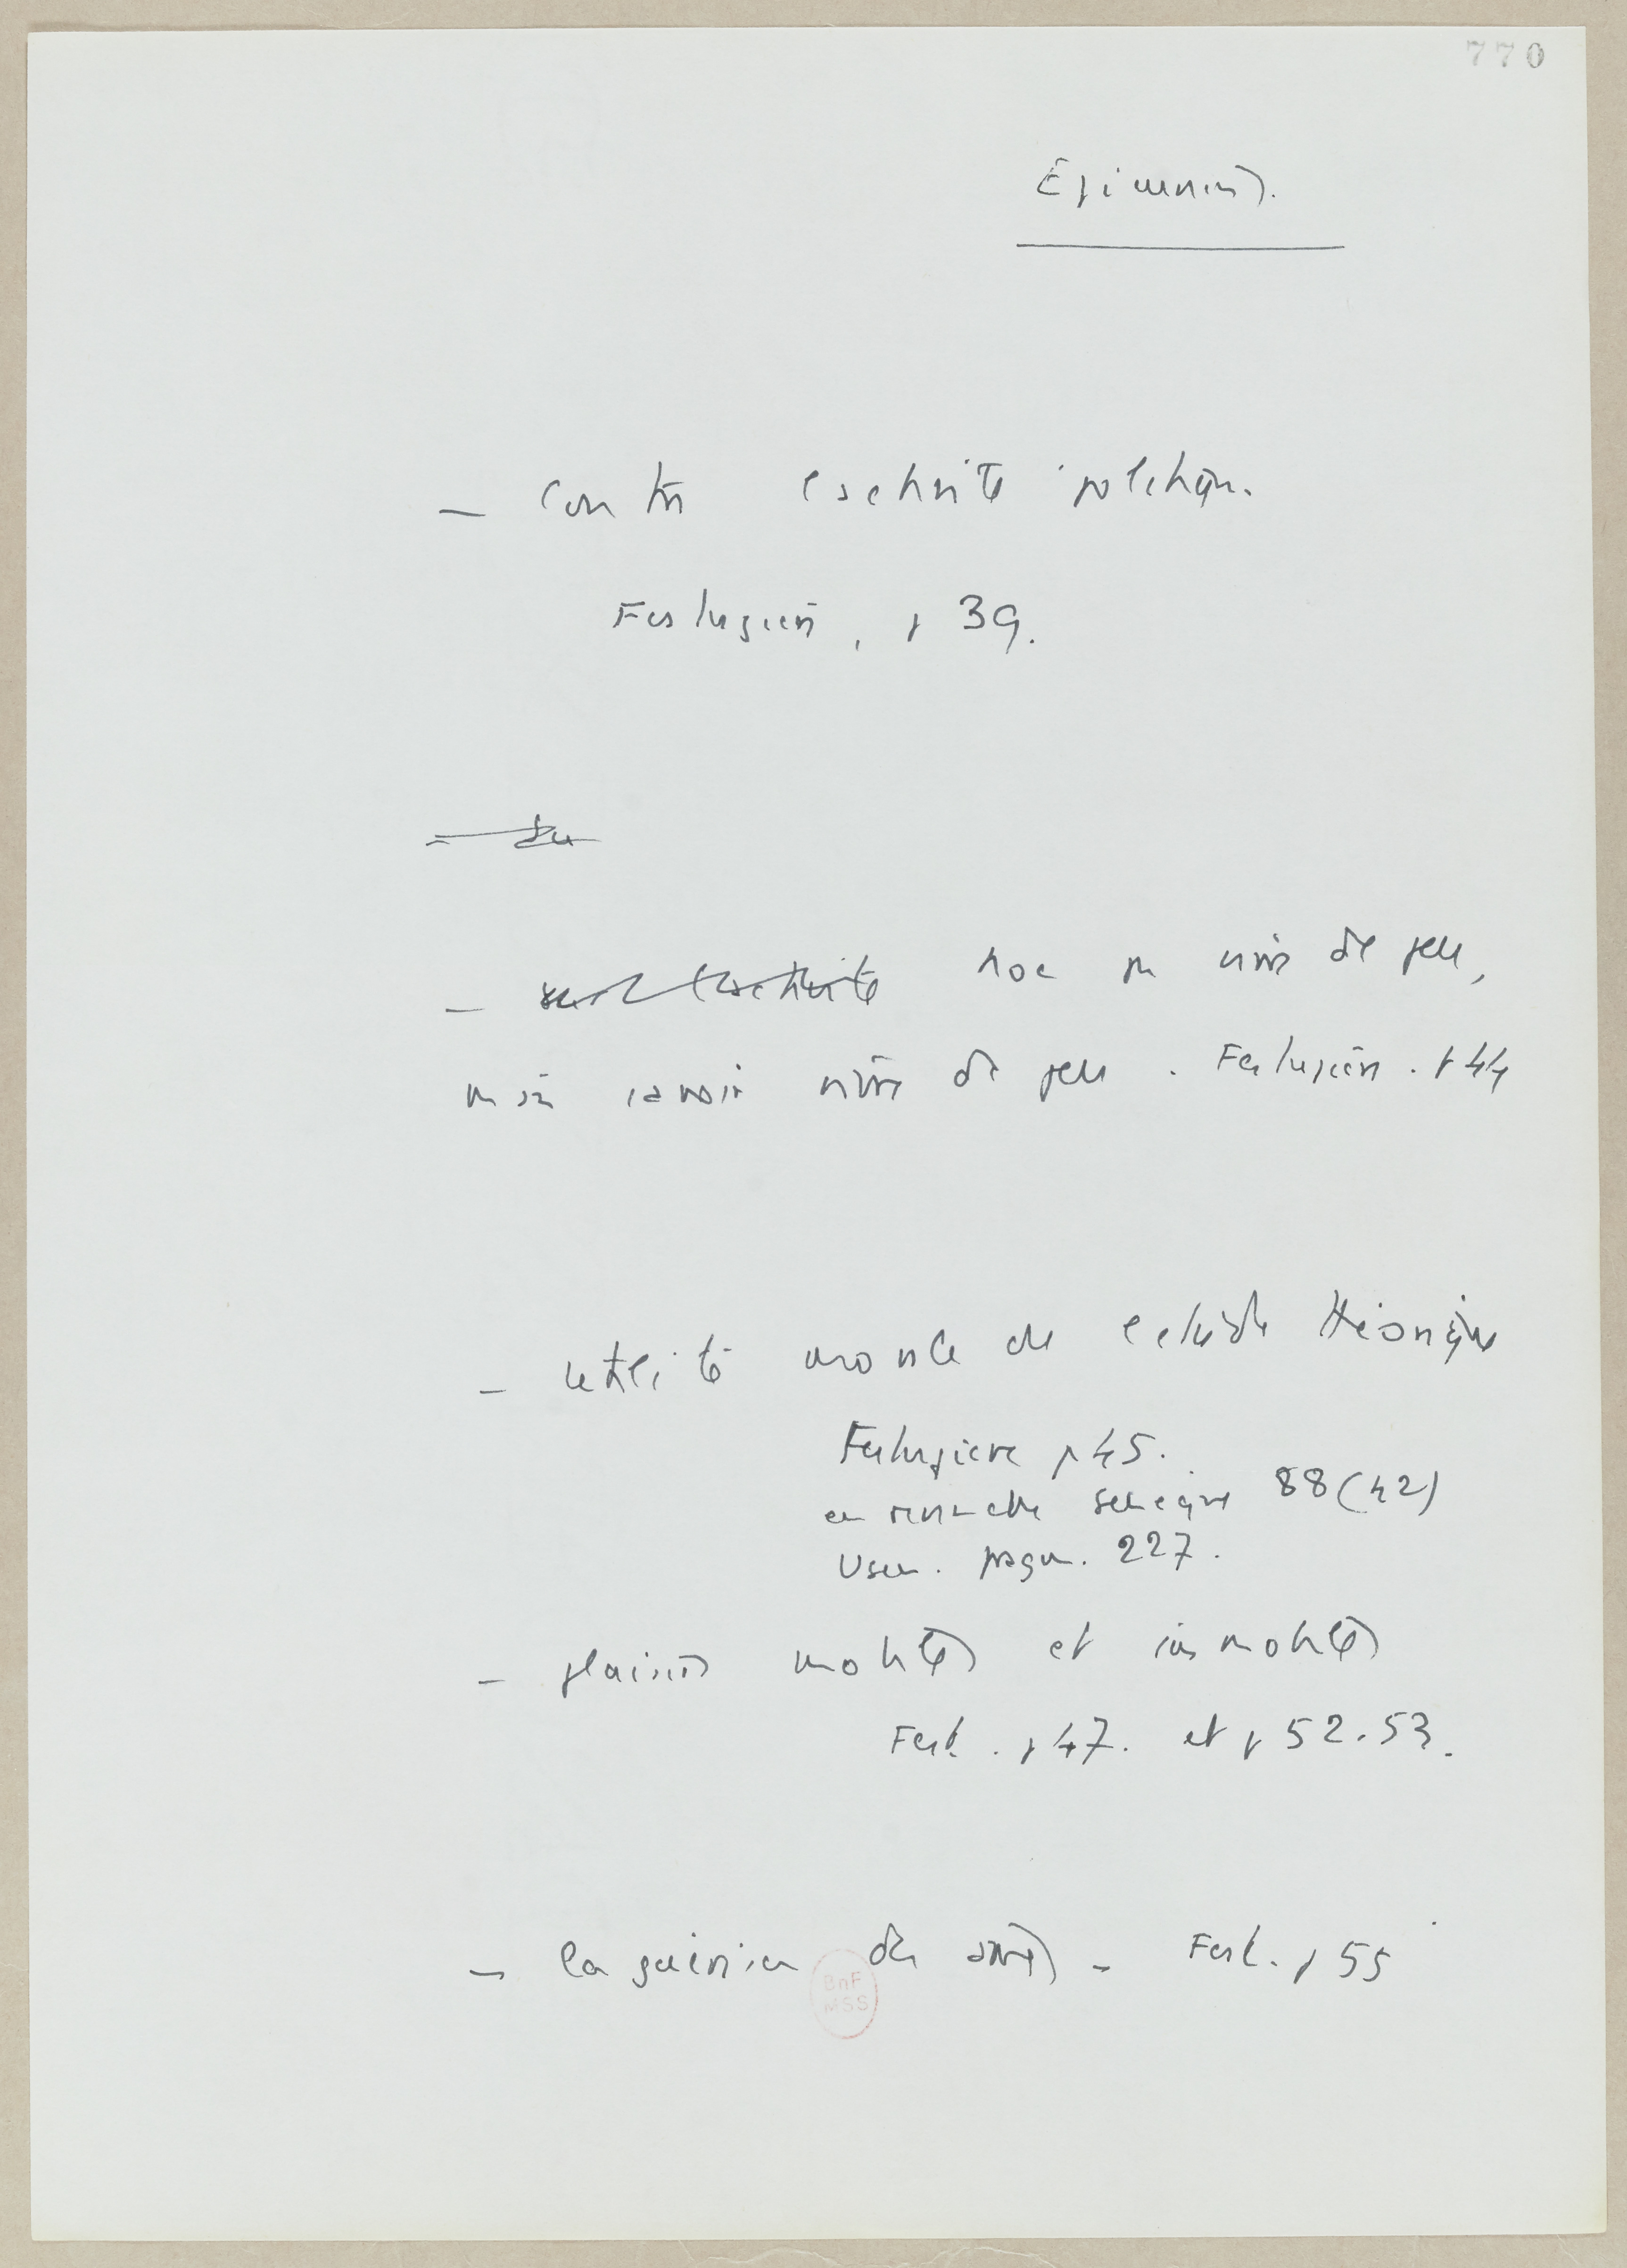 770
Épicuriens.
– contre l'activité politique.
Festugière, p 39.
– du
– sur l'activité non pas vivre de peu,
mais savoir vivre de peu. Festugière. p 44
– utilité morale de l'étude théorique
Festugière p 45.
en revanche Sénèque 88 (42)
Usen. fragm. 227.
– plaisirs mobiles et immobiles
Fest. p 47. et p 52.53.
– la guérison des âmes – Fest. p 55
BnF
MSS